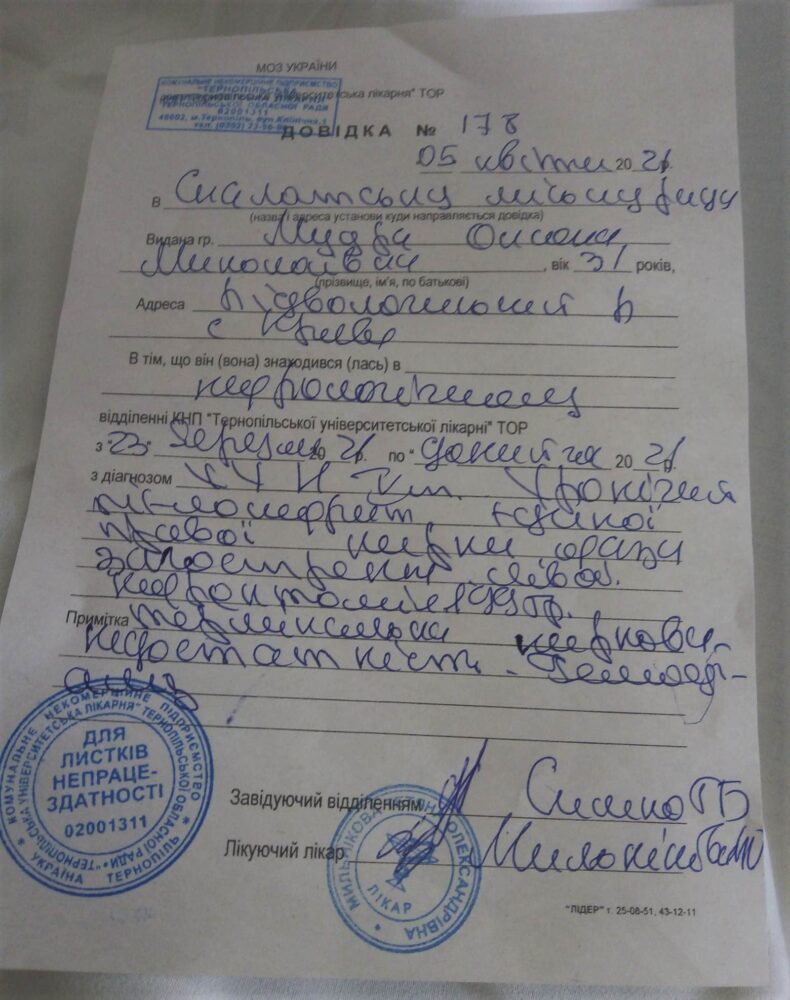 МОЗ УКРАЇНИ
КОМУНАЛЬНЕ НЕКОМЕРЦІЙНЕ ПІДПРИЄМСТВО
"ТЕРНОПІЛЬСЬКА
УНІВЕРСИТЕТСЬКА ЛІКАРНЯ"
ТЕРНОПІЛЬСЬКОЇ ОБЛАСНОЇ РАДИ
02001311
46002, м.Тернопіль, вул.Клінічна,1
ська лікарня" ТОР
ДОВІДКА № 178
05 квітня 2021р.
В Скалатську міську раду
(назва і адреса установи куди направляється довідка)
Видана гр. Мудра Оксана
Миколаївна, вік 31 років,
(прізвище, ім'я, по батькові)
Адреса Підволочиський р
с Криве
В тім, що він (вона) знаходився (лась) в
нефрологічному
відділенні КНП "Тернопільської університетської лікарні" ТОР
з "23" березня 2021р. по " 2021р.
з діагнозом ХХН V ст. Хронічний
пієлонефрит єдиної
правої нирки фаза
загострення. лівоб.
нефректомія 199 р.
Примітка термінальна ниркова
недостатність. Гемоді-
аліз
КОМУНАЛЬНЕ НЕКОМЕРЦІЙНЕ ПІДПРИЄМСТВО
"ТЕРНОПІЛЬСЬКА УНІВЕРСИТЕТСЬКА ЛІКАРНЯ" ТЕРНОПІЛЬСЬКОЇ ОБЛАСНОЇ РАДИ
УКРАЇНА ТЕРНОПІЛЬ
ДЛЯ
ЛИСТКІВ
НЕПРАЦЕ-
ЗДАТНОСТІ
02001311
Завідуючий відділенням
Лікуючий лікар
ОЛЕКСАНДРІВНА
ЛІКАР
"ЛІДЕР" т. 25-08-51, 43-12-11